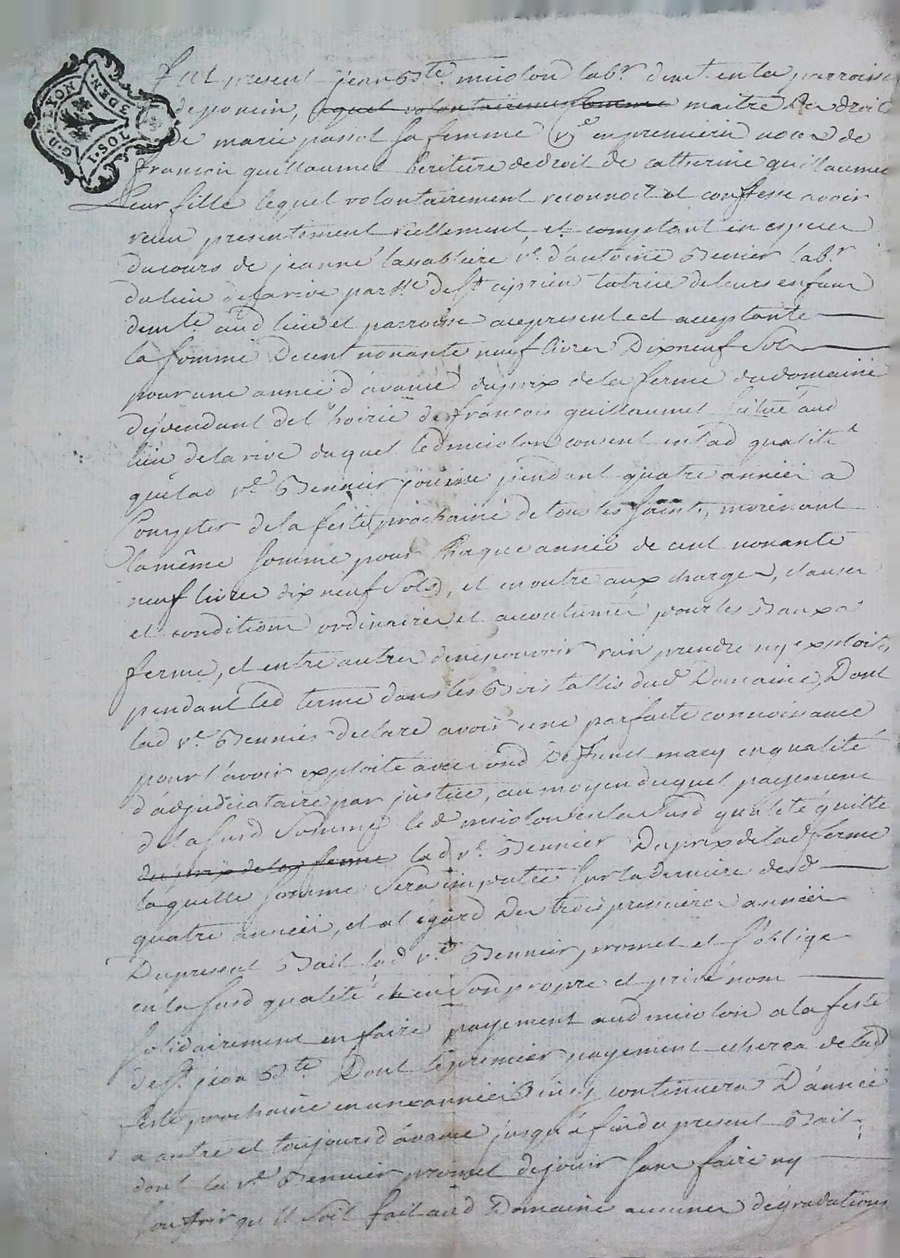 G. D. LYON
1 SOL 3 DEN.
Fut present jean Bte miolon labr demt. en la parroisse
de poncin, lequel volontairement comme maitre des droits
de marie passot sa femme Ve en premiere noces de
françois guillaumet heritiere de droit de catherine guillaumet
Leur fille lequel volontairement reconnoit et confesse avoir
receu presentement reellement et comptant en especes
du cours de jeanne lassabliere Ve. d'antoine Bennier labr
du lieu de la rive parsse de st ciprien tutrice de leurs enfans
demte aud lieu et parroisse acepresente et acceptante
la somme De cent nonante neuf livres Dix neuf Sols
pour une année d'avance du prix de la ferme du domaine
dépendant de l'hoirie de françois guillaumet situé aud
lieu de la rive duquel led miolon consent en lad qualité
que lad Ve Bennier jouisse pendant quatre années a
Compter de la feste prochaine de tous les saints, moienant
la même somme pour chaque année de cent nonante
neuf livres dix neuf sols, et en outre aux charges, clauses
et conditions ordinaires et acoutumés pour les Baux a
ferme, et entre autres de ne pouvoir rien prendre ny exploiter
pendant led terme dans les Bois tallis dud Domaine, Dont
lad Ve Bennier declare avoir une parfaite connoissance
pour l'avoir exploité avec sond Defunct mary en qualité
d'adjudicataire par justice, au moyen duquel payement
de la susd somme led miolon en la susd qualité quitte
du prix de la ferme lad Ve. Bennier Du prix de lad ferme
laquelle somme sera imputée sur la derniere desd
quatre années, et al egard Des trois premieres années
Du present Bail lad Ve Bennier promet et s'oblige
en la susd qualité et en son propre et privé nom
solidairement en faire payement aud miolon a la feste
de st. jean Bte Dont le premier payement echerra de lad
feste prochaine en une année continuera D'année
a autre et toujours d'avance jusqu'a fin du present Bail
dont la Ve Bennier promet de jouir sans faire ny
souffrir qu'il soit fait aud Domaine aucunes dégradations